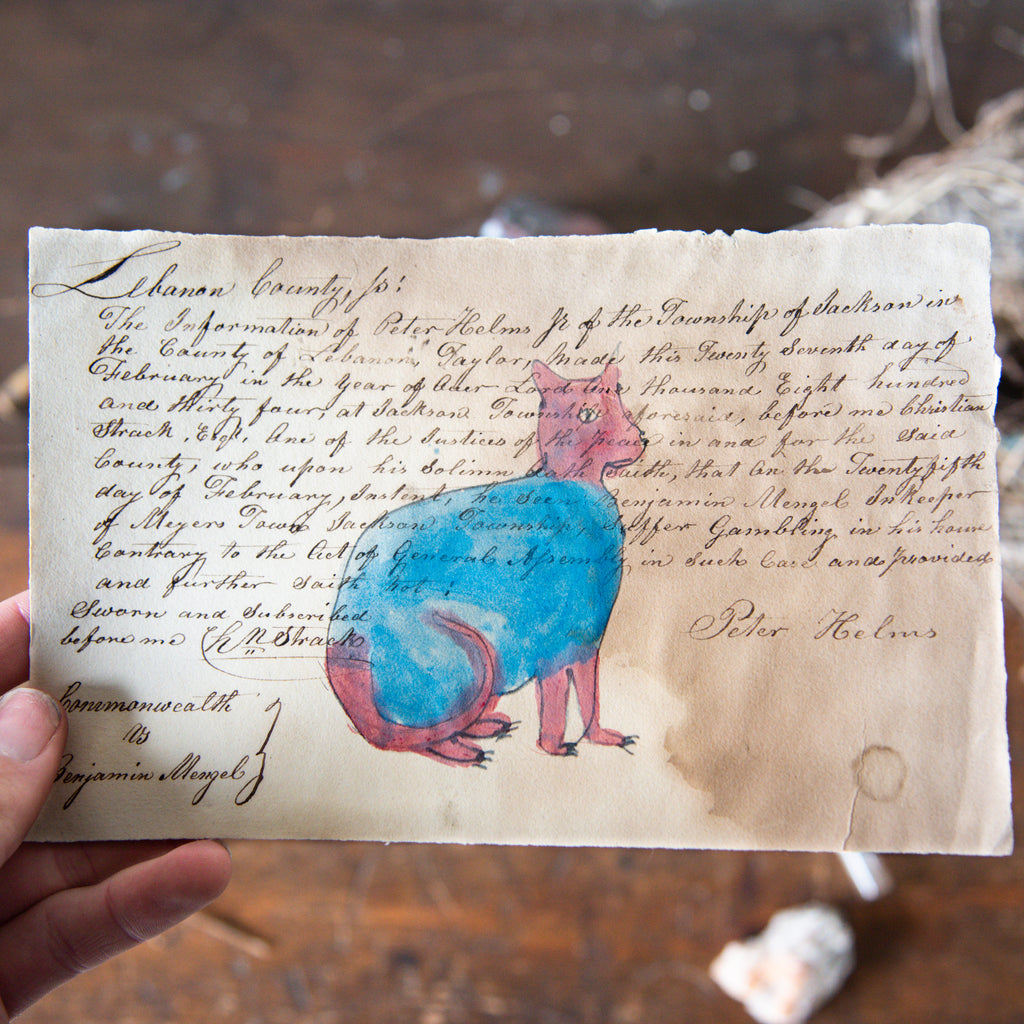 Lebanon County, Ss:
The Information of Peter Helms Jr of the Township of Jackson in
the County of Lebanon, Taylor, Made this Twenty Seventh day of
February in the Year of Ouer Lord One thousand Eight hundred
and thirty four, at Jackson Township aforesaid, before me Christian
Strack, Esqr, One of the Justices of the peace in and for the Said
County, who upon his Solimn Oath Saith, that On the Twenty fifth
day of February, Instent, he Seen Benjamin Mengel Inkeeper
of Meyers Town Jackson Township, Suffer Gambling in his house
Contrary to the Act of General Assembly in Such Case and provided
and further Saith not:
Sworn and Subscribed
before me Chn Strack
Peter Helms
Commonwealth
vs
Benjamin Mengel